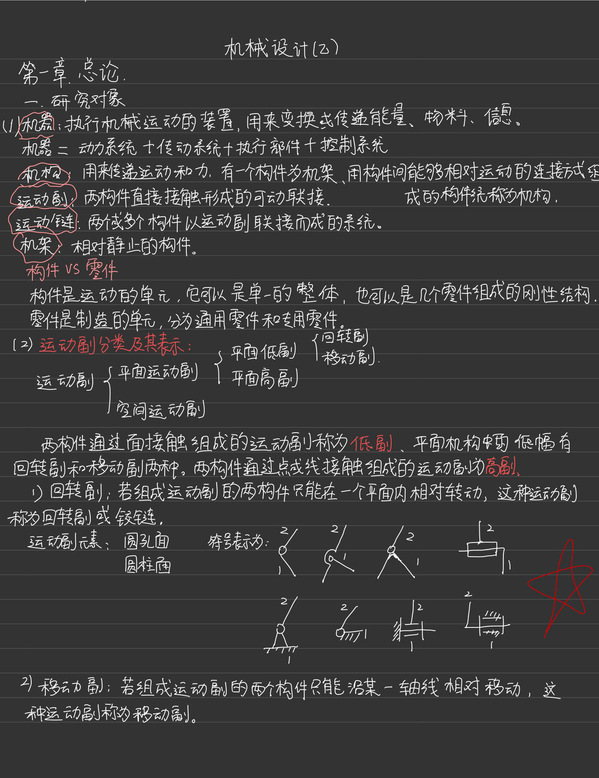 机械设计(乙)
第一章 总论.
一. 研究对象
(1) 机器：执行机械运动的装置，用来变换或传递能量、物料、信息。
机器 = 动力系统 + 传动系统 + 执行部件 + 控制系统
机构：用来传递运动和力，有一个构件为机架、用构件间能够相对运动的连接方式组
成的构件统称为机构.
运动副：两构件直接接触形成的可动联接.
运动链：两个或多个构件以运动副联接而成的系统。
机架：相对静止的构件。
构件 VS 零件
构件是运动的单元，它可以是单一的整体，也可以是几个零件组成的刚性结构.
零件是制造的单元，分为通用零件和专用零件.
(2) 运动副分类及其表示：
运动副 { 平面运动副 { 平面低副 { 回转副
移动副.
平面高副
空间运动副
两构件通过面接触组成的运动副称为低副、平面机构中 低幅有
回转副和移动副两种。两构件通过点或线接触组成的运动副为高副.
1) 回转副：若组成运动副的两构件只能在一个平面内相对转动，这种运动副
称为回转副或铰链.
运动副元素：圆孔面
圆柱面
符号表示为：
2 1 2 1 2 1 2 1
2 1 2 1 2 1 2 1
2) 移动副：若组成运动副的两个构件只能沿某一轴线相对移动，这
种运动副称为移动副。